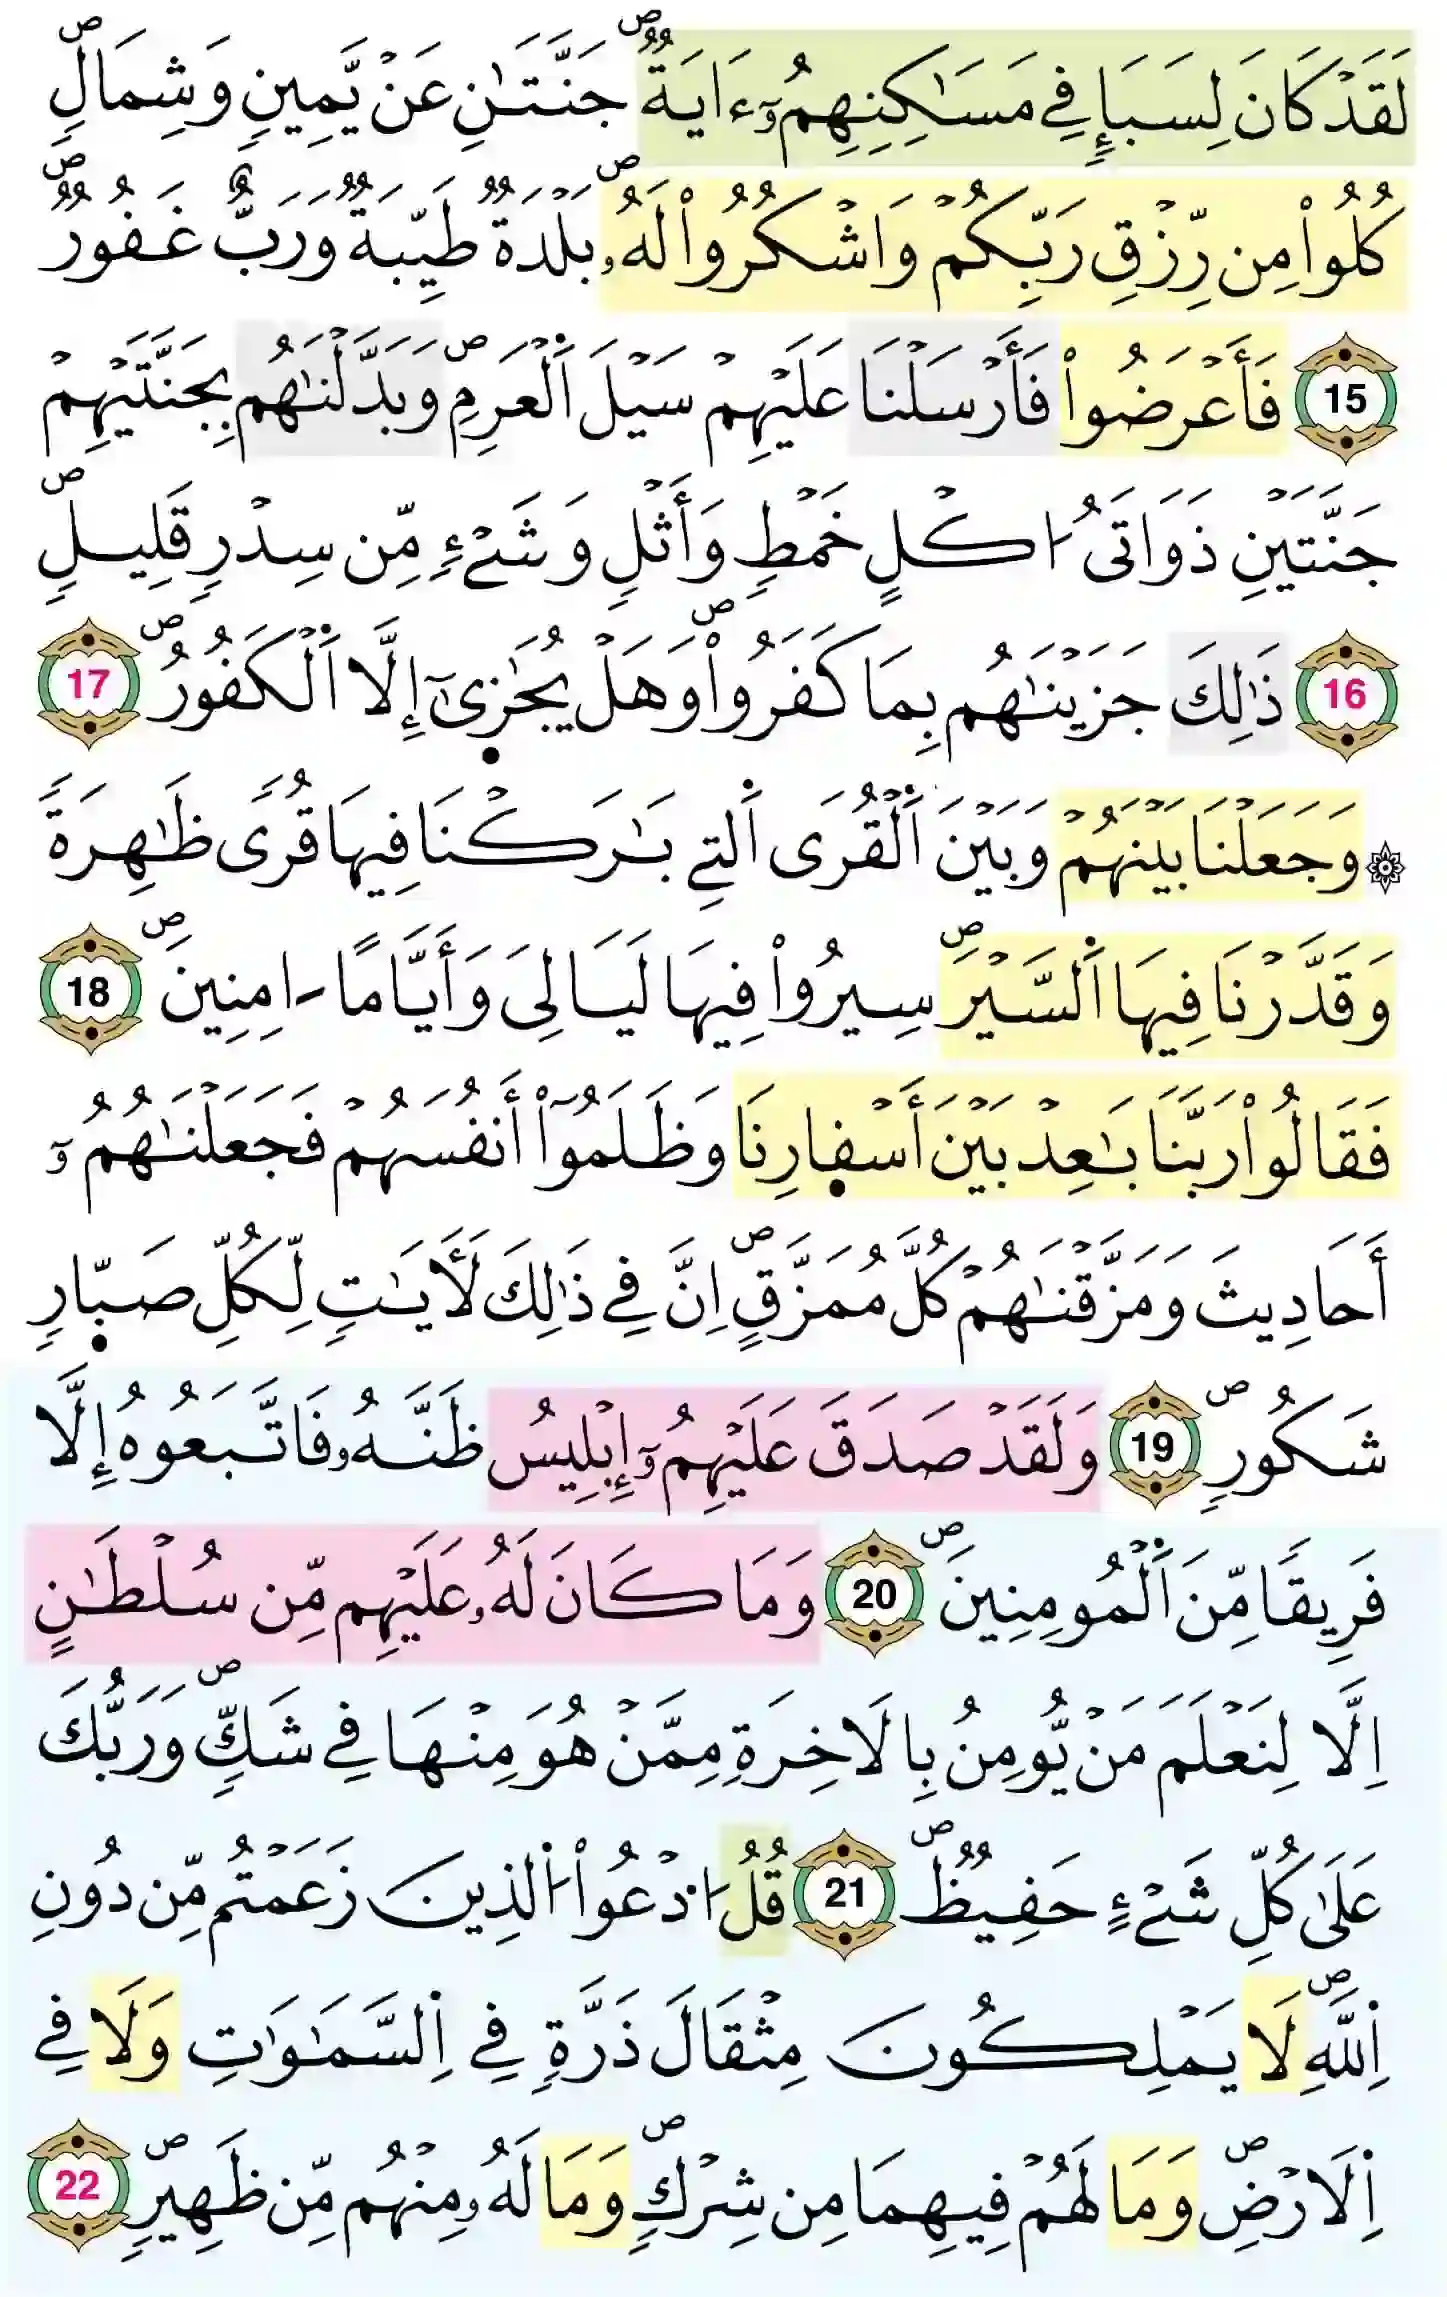 لَقَدْ كَانَ لِسَبَإٖ فِے مَسَٰكِنِهِمُۥٓ ءَايَةٞۖ جَنَّتَٰنِ عَنْ يَّمِينٖ وَشِمَالٖۖ
كُلُواْ مِن رِّزْقِ رَبِّكُمْ وَاشْكُرُواْ لَهُۥۖ بَلْدَةٞ طَيِّبَةٞ وَرَبٌّ غَفُورٞۖ
15 فَأَعْرَضُواْ فَأَرْسَلْنَا عَلَيْهِمْ سَيْلَ اَ۬لْعَرِمِۖ وَبَدَّلْنَٰهُم بِجَنَّتَيْهِمْ
جَنَّتَيْنِ ذَوَاتَىُ ا۟كْلٍ خَمْطٖ وَأَثْلٖ وَشَےْءٖ مِّن سِدْرٖ قَلِيلٖۖ
16 ذَٰلِكَ جَزَيْنَٰهُم بِمَا كَفَرُواْۖ وَهَلْ يُجَٰز۪ىٰٓ إِلَّا اَ۬لْكَفُورُۖ 17
۞ وَجَعَلْنَا بَيْنَهُمْ وَبَيْنَ اَ۬لْقُرَى اَ۬لتِے بَٰرَكْنَا فِيهَا قُرىٗ ظَٰهِرَةٗ
وَقَدَّرْنَا فِيهَا اَ۬لسَّيْرَۖ سِيرُواْ فِيهَا لَيَالِىَ وَأَيَّاماً اٰمِنِينَۖ 18
فَقَالُواْ رَبَّنَا بَٰعِدْ بَيْنَ أَسْف۪ارِنَا وَظَلَمُوٓاْ أَنفُسَهُمْ فَجَعَلْنَٰهُمُۥٓ
أَحَادِيثَ وَمَزَّقْنَٰهُمْ كُلَّ مُمَزَّقٍۖ اِنَّ فِے ذَٰلِكَ لَأٓيَٰتٖ لِّكُلِّ صَبّ۪ارٖ
شَكُورٖۖ 19 وَلَقَدْ صَدَقَ عَلَيْهِمُۥٓ إِبْلِيسُ ظَنَّهُۥ فَاتَّبَعُوهُ إِلَّا
فَرِيقاٗ مِّنَ اَ۬لْمُومِنِينَۖ 20 وَمَا كَانَ لَهُۥ عَلَيْهِم مِّن سُلْطَٰنٍ
اِلَّا لِنَعْلَمَ مَنْ يُّومِنُ بِالَاخِرَةِ مِمَّنْ هُوَ مِنْهَا فِے شَكّٖۖ وَرَبُّكَ
عَلَىٰ كُلِّ شَےْءٍ حَفِيظٞۖ 21 قُلُ ا۟دْعُواْ اُ۬لذِينَ زَعَمْتُم مِّن دُونِ
اِ۬للَّهِۖ لَا يَمْلِكُونَ مِثْقَالَ ذَرَّةٖ فِے اِ۬لسَّمَٰوَٰتِ وَلَا فِے
اِ۬لَارْضِۖ وَمَا لَهُمْ فِيهِمَا مِن شِرْكٖۖ وَمَا لَهُۥ مِنْهُم مِّن ظَهِيرٖۖ 22